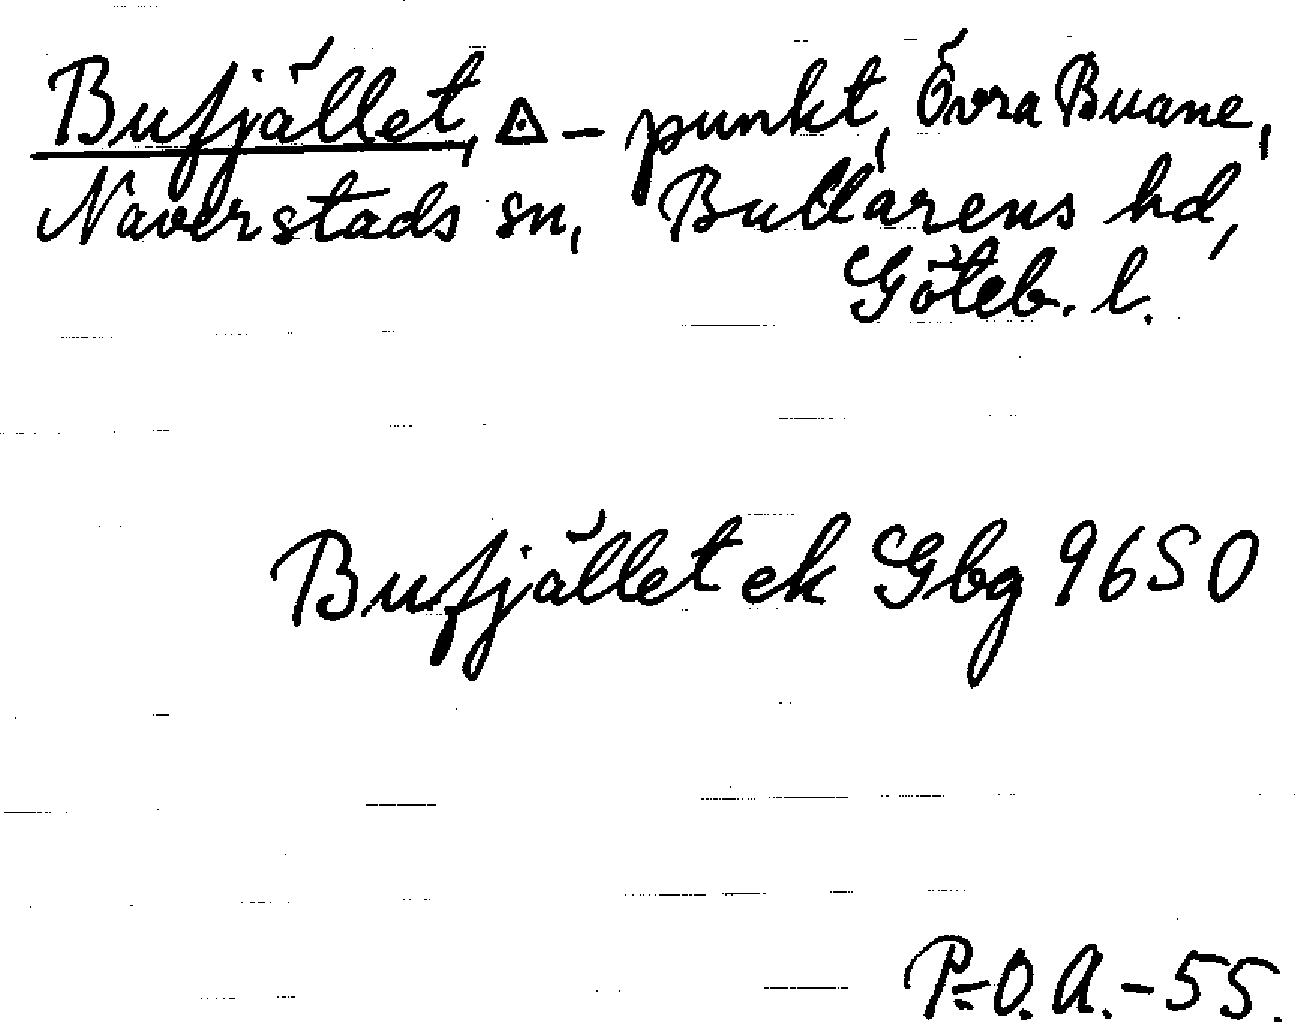 Bufjället, △ - punkt, Övra Buane,
Naverstads sn, Bullarens hd,
Göteb. l.
Bufjället ek Gbg 9650
P-O. A. - 55.